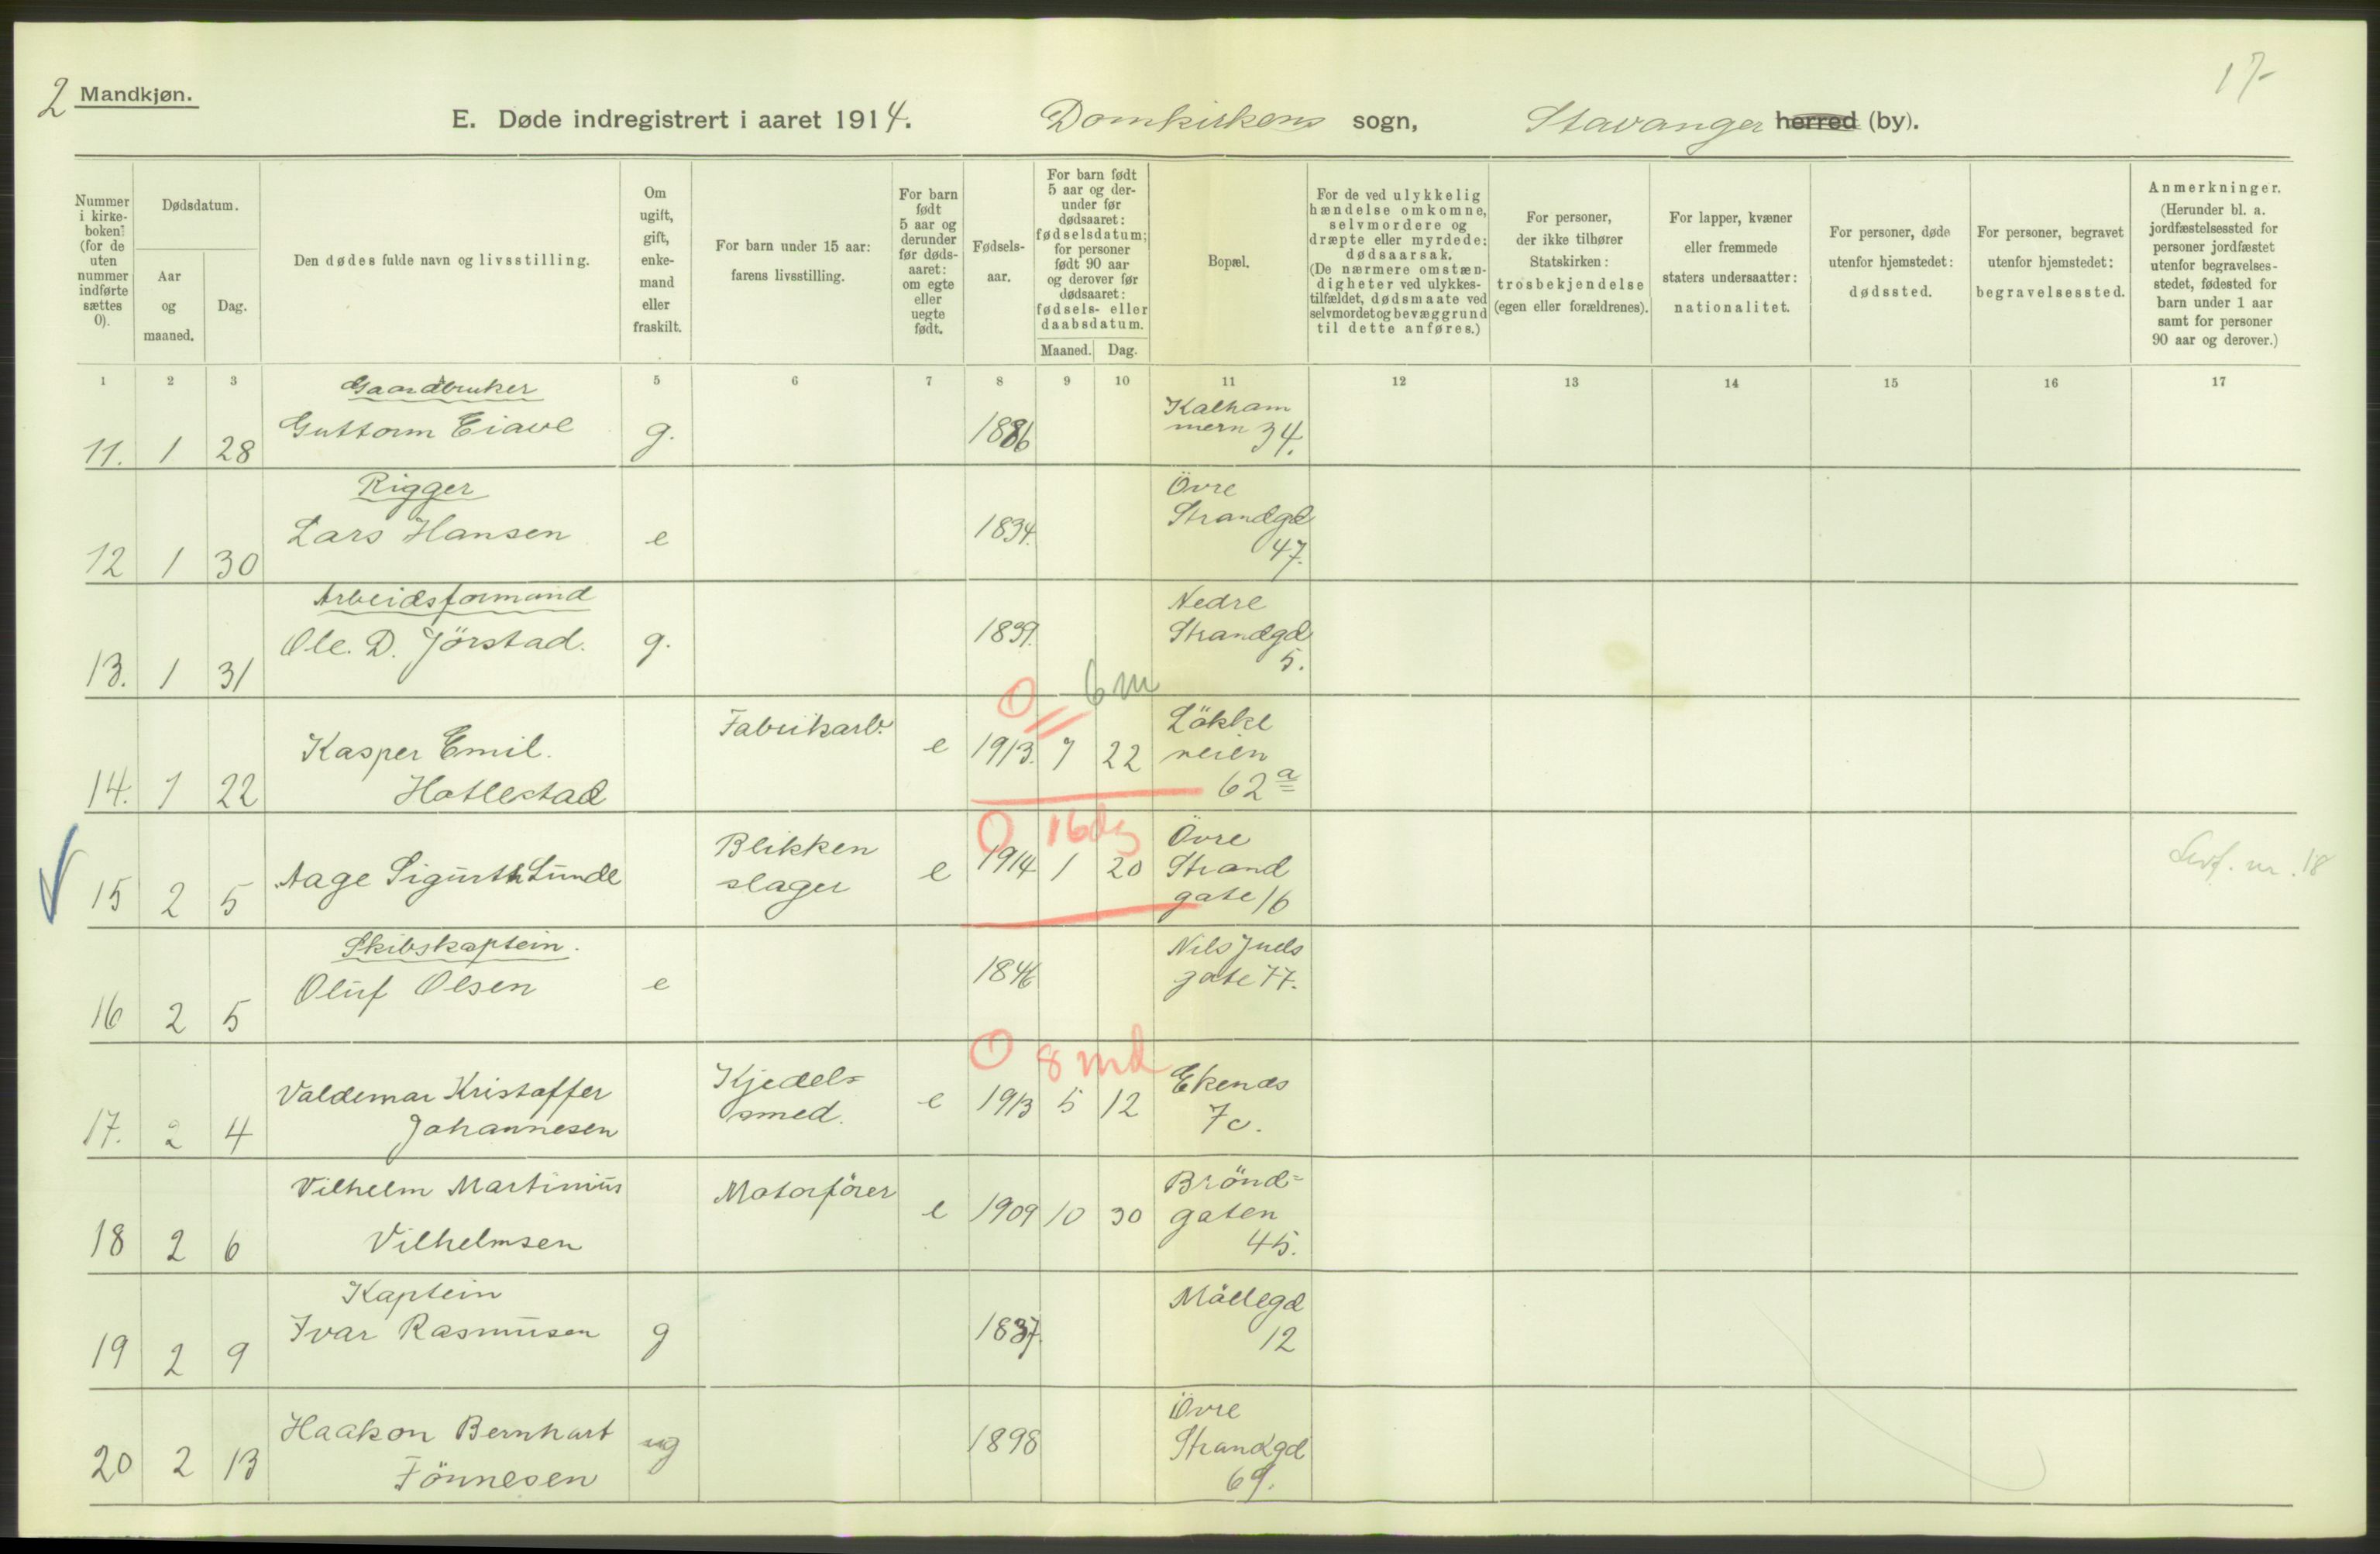 2 Mandkjøn.
17
E. Døde indregistrert i aaret 1914. Domkirkens sogn, Stavanger herred (by).
Nummer i kirkeboken (for de uten nummer indførte sættes 0).
Dødsdatum.
Aar og maaned.
Dag.
Den dødes fulde navn og livsstilling.
Om ugift, gift, enkemand eller fraskilt.
For barn under 15 aar: farens livsstilling.
For barn født 5 aar og derunder før dødsaaret: om egte eller uegte født.
Fødselsaar.
For barn født 5 aar og derunder før dødsaaret: fødselsdatum; for personer født 90 aar og derover før dødsaaret: fødsels- eller daabsdatum.
Maaned. Dag.
Bopæl.
For de ved ulykkelig hændelse omkomne, selvmordere og dræpte eller myrdede: dødsaarsak. (De nærmere omstændigheter ved ulykkestilfældet, dødsmaate ved selvmordet og bevæggrund til dette anføres.)
For personer, der ikke tilhører Statskirken: trosbekjendelse (egen eller forældrenes).
For lapper, kvæner eller fremmede staters undersaatter: nationalitet.
For personer, døde utenfor hjemstedet: dødssted.
For personer, begravet utenfor hjemstedet: begravelsessted.
Anmerkninger. (Herunder bl. a. jordfæstelsessted for personer jordfæstet utenfor begravelsesstedet, fødested for barn under 1 aar samt for personer 90 aar og derover.)
1 2 3 5 6 7 8 9 10 11 12 13 14 15 16 17
Gaardbruker
11. 1 28 Guttorm Eiave g. 1886 Kalhammern 34.
Rigger
12 1 30 Lars Hansen e 1834. Övre Strandgd 47.
Arbeidsformand
13. 1 31 Ole. D. Jörstad. g. 1839. Nedre Strandgd 5.
6 m
14. 1 22 Kasper Emil. Hatlestad Fabrikarb. e 1913. 7 22 Lökkeveien 62a
16 dg
15 2 5 Aage Sigurth Lunde Blikkenslager e 1914 1 20 Övre Strandgate 16 nr. 18
Skibskaptein.
16 2 5 Oluf Olsen e 1846 Nils Juels gate 77.
8 md
17. 2 4 Valdemar Kristoffer Johannesen Kjedelsmed. e 1913 5 12 Ekenæs 7c.
18 2 6 Vilhelm Martinius Vilhelmsen Motorförer e 1909 10 30 Bröndgaten 45.
Kaptein
19 2 9 Ivar Rasmusen g 1837. Möllegd 12
20 2 13 Haakon Bernhart Tönnesen ug 1898 Övre Strandgd 69.